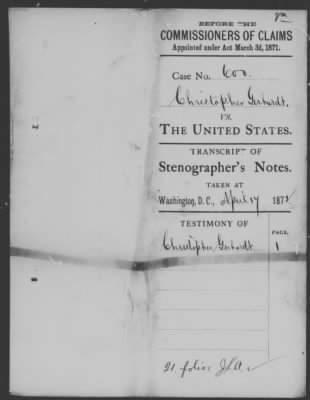 Va
BEFORE THE
COMMISSIONERS OF CLAIMS
Appointed under Act March 3d, 1871.
Case No. 600.
Christopher Gerhardt.
VS.
THE UNITED STATES.
TRANSCRIPT OF
Stenographer's Notes.
TAKEN AT
Washington, D. C., April 17 187
TESTIMONY OF
PAGE.
Christopher Gerhardt 1
21 folios J.L.A.